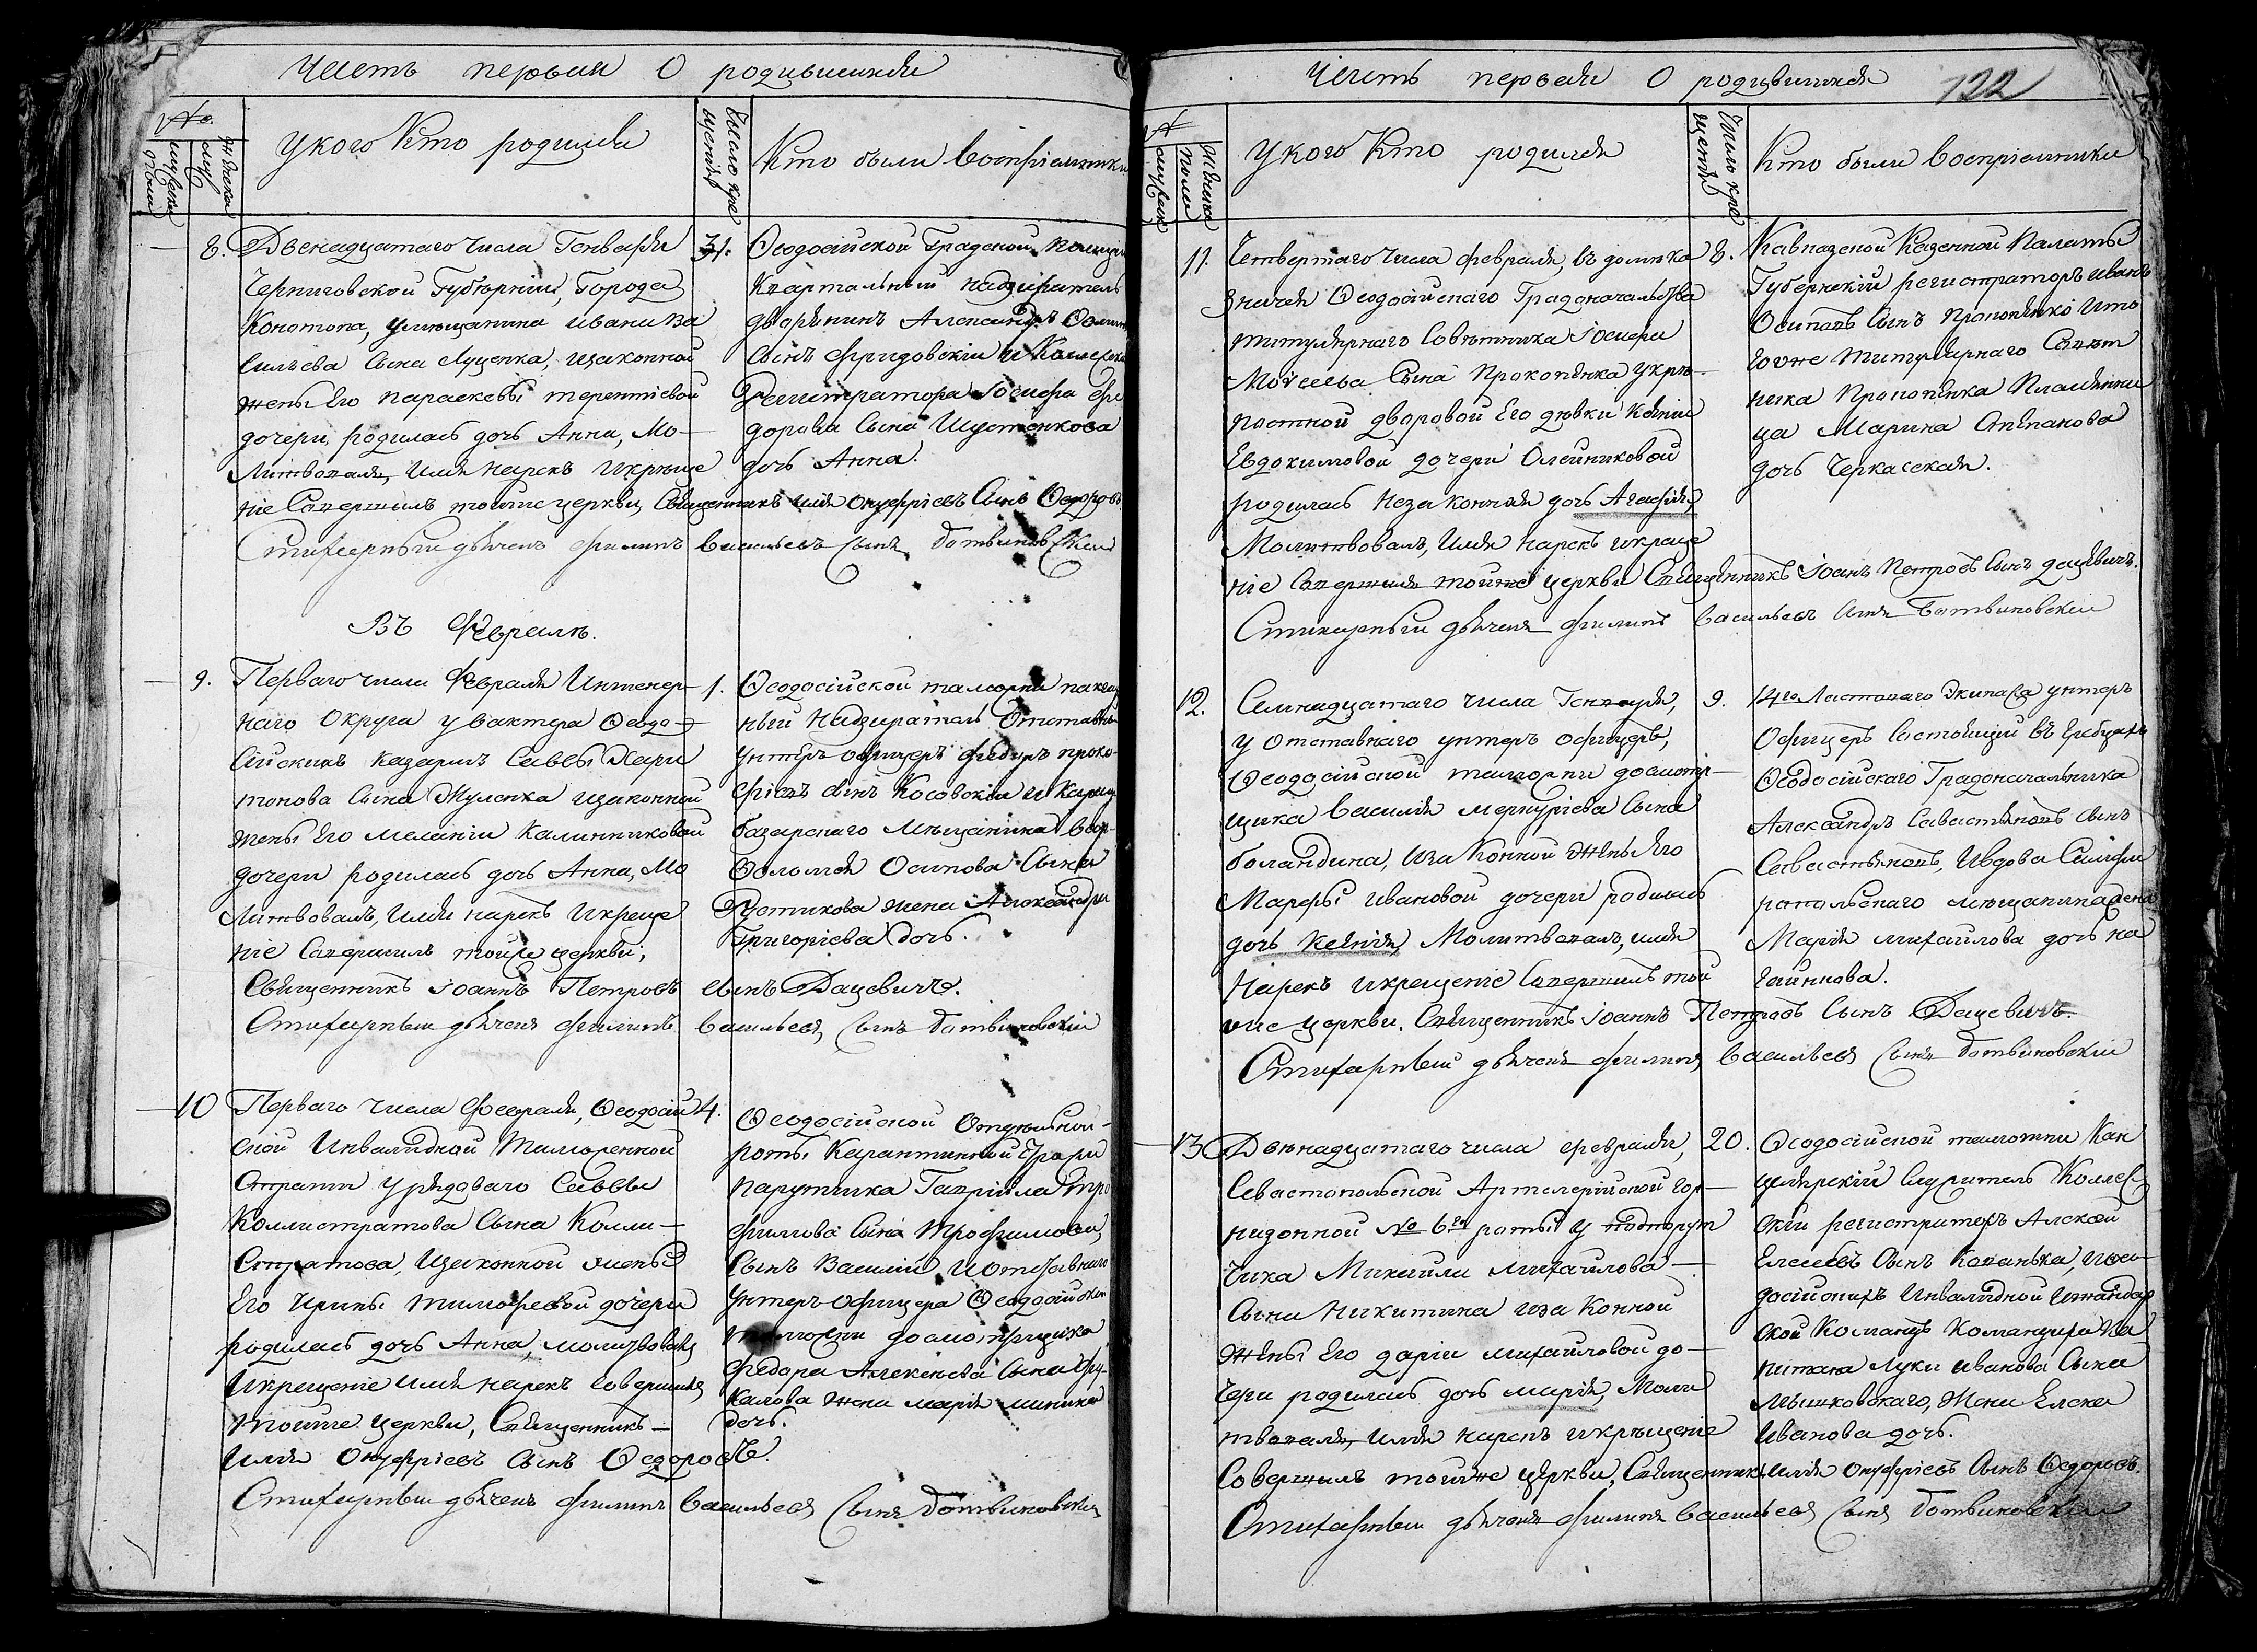 Часть первая О родившихся
№
мужеска
женска
У кого кто родился
Число крещенія
Кто были восприемники
8.
Двенадцатаго числа Генваря
Черниговской Губерніи, Города
Конотопа, у мещанина Ивана Ва
сильева сына Луценка, и законной
жены Его Параскевы Терентіевой
дочери, родилась дочь Анна, Мо-
литвовалъ, имя нарекъ и креще
ніе совершилъ тойже церкви, Священникъ Илія Онуфріевъ Сынъ Ѳедоровъ
Стихарный дьячекъ Филипъ Васильевъ сынъ Ботвиновскій
31.
Ѳеодосійской Градской Полиціи
Квартальный надзиратель
дворянинъ Александръ
сынъ Фридовскій и Коллежска
Регистратора Іосифа Фе
дорова Сына Шустенкова
дочь Анна.
Въ Феврале.
9.
Перваго числа Февраля Инженер-
наго Округа у вахтера Ѳеодо-
сійскихъ казармъ Саввы Хари
тонова сына Жуленка и законной
жены Его Меланіи Калинниковой
дочери родилась дочь Анна, Мо
литвовалъ, имя нарекъ и креще
ніе совершилъ тойже церкви,
Священникъ Іоаннъ Петровъ сынъ Дацевичъ.
Стихарный дьячекъ Филипъ Васильевъ сынъ Ботвиновскій
1.
Ѳеодосійской таможни пакгауз
ный Надзиратель Отставный
унтеръ офицеръ Федоръ Проко-
фіевъ сынъ Косовскій и Карасу
базарскаго мещанина Варѳ-
оломея Осипова сына
Рустикова жена Александра
Григоріева дочь.
10
Перваго числа Февраля, Ѳеодосій
ской Инвалидной Таможенной
Стражи у рядоваго Саввы
Коллистратова Сына Колли-
стратова, и законной жены
Его Ирины Тимофеевой дочери
родилась дочь Анна, молитвовалъ
и крещеніе имя нарекъ совершилъ
тойже церкви, Священникъ
Илія Онуфріевъ сынъ Ѳедоровъ.
Стихарный дьячекъ Филипъ Васильевъ сынъ Ботвиновскій
4.
Ѳеодосійской Отдельной
роты Карантинной Стражи
Порутчика Гавріила Тро
фимова сына Трофимова,
Сынъ Василій и отставнаго
Унтеръ-офицера Ѳеодосійской
таможни досмотрщика
Федора Алексеева сына
жена Марія
дочь.
Часть первая О родившихся
122
№
мужеска
женска
полы
У кого кто родился
Число крещенія
Кто были восприемники
11.
Четвертаго числа февраля, въ доме ка
значея Ѳеодосійскаго Градоначальства
титулярнаго Советника Іосифа
Моисеева Сына Прокопенка у кре-
постной дворовой Его девки Ксеніи
Евдокимовой дочери Олейниковой
родилась незаконная дочь Агафія,
Молитвовалъ, имя нарекъ и креще
ніе совершилъ тойже церкви Священникъ Іоанъ Петровъ сынъ Дацевичъ.
Стихарный дьячекъ Филипъ Васильевъ сынъ Ботвиновскій
8.
Кавказской Казенной Палаты
Губернскій регистраторъ Иванъ
Осиповъ сынъ Прокопенко и то
гоже титулярнаго Совет
ника Прокопенка Племянни
ца Марина Степанова
дочь Черкасская.
12.
Семнадцатаго числа Генваря,
у отставнаго унтеръ офицера,
Ѳеодосійской таможни досмотр-
щика Василія Меркуріева Сына
Боландина, и законной жены Его
Марфы Ивановой дочери родилась
дочь Ксенія, Молитвовалъ, имя
нарекъ и крещеніе совершилъ той
же церкви. Священникъ Іоаннъ Петровъ сынъ Дацевичъ.
Стихарный дьячекъ Филипъ Васильевъ сынъ Ботвиновскій
9.
14го Ластоваго Экипажа унтеръ
Офицеръ состоящій въ
Ѳеодосійскаго Градоначальника
Александръ Савастьяновъ сынъ
Савастьяновъ, и вдова Симфе
ропольскаго мещанина жена
Марія Михайлова дочь На
гайнова.
13
Двенадцатаго числа февраля,
Севастопольской Артилерійской Гор-
низонной № 6го роты у подпорут
чика Михайлы Михайлова
Сына Никитина и законной
жены Его Даріи Михайловой до-
чери родилась дочь Марія, Моли
твовалъ, имя нарекъ и крещеніе
Совершилъ тойже церкви, Священникъ Илія Онуфріевъ сынъ Ѳедоровъ.
Стихарный дьячекъ Филипъ Васильевъ сынъ Ботвиновскій
20.
Ѳеодосійской таможни Кан
целярскій служитель Коллеж
скій регистраторъ Алексей
Елисеевъ сынъ Коханька, и Ѳео-
досійскихъ Инвалидной и жандар
ской Командъ Командира Ка
питана Луки Иванова Сына
Мышковскаго, жена Елена
Иванова дочь.